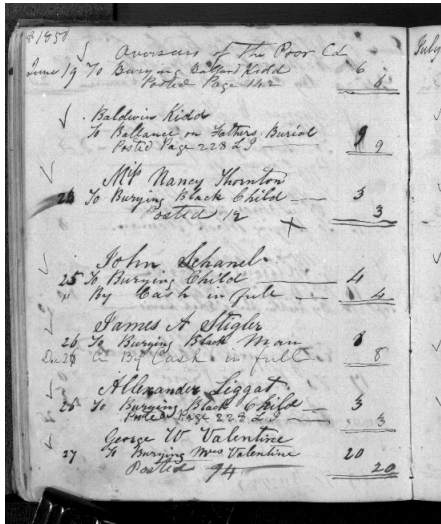 1850
Overseers of the Poor Cd
June 19 To Burying Ballard Kidd 6
Posted Page 142 6
Baldwin Kidd
To Ballance on Fathers Burial 9
Posted Page 228 L I 9
Miss Nancy Thornton
24 To Burying Black Child 3
Posted 12 3
John Schanel
25 To Burying Child 4
" By Cash in full 4
James A Stigler
26 To Burying Black Man 8
Dec 26 By Cash in full 8
Allexander Liggat
25 To Burying Black Child 3
Posted Page 228 L I 3
George W Valentine
27 To Burying Mrs Valentine 20
Posted 94 20
July